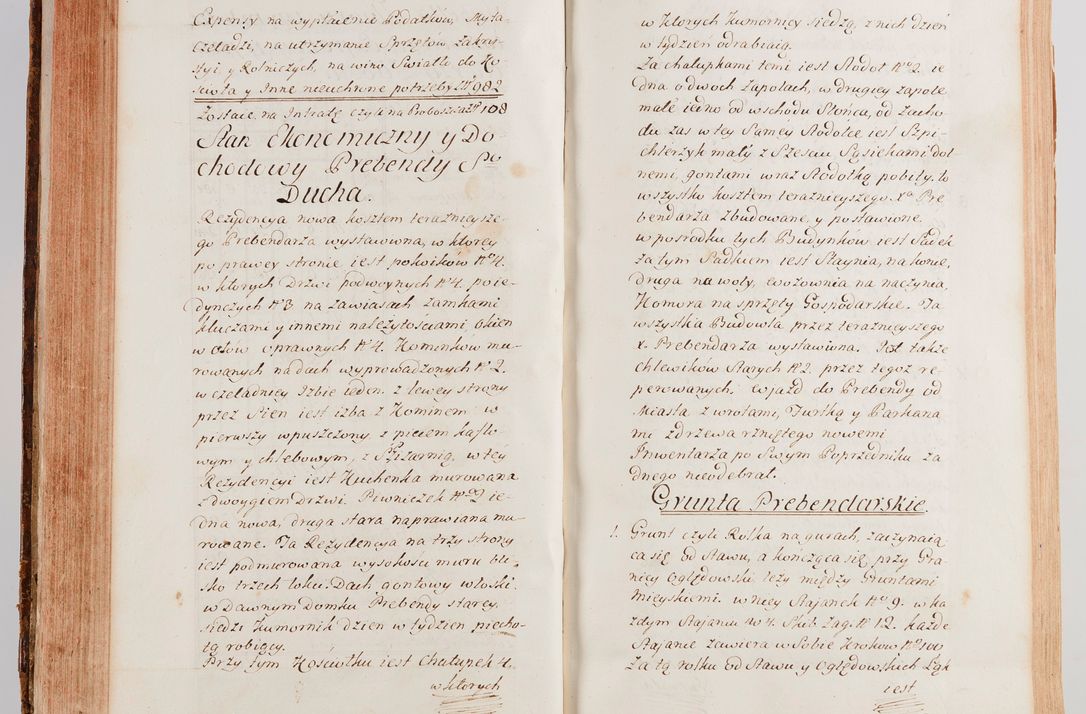 Expensy na wypłacenie Podatków, Myta
czeladzi, na utrzymanie Sprzętów, Zakry-
styi, y Rolniczych, na wino Swiatło do Ko-
scioła y Inne nieuchrone potrzeby Złł 982
Zostaie na Intratę czyli na Proboszcza Złł 108
Stan Ekonomiczny y Do-
chodowy Prebendy So
Ducha.
Rezydencya nowa kosztem teraznieysze-
go Prebendarza wystawiona, w ktorey
po prawey stronie iest pokoikow No 4.
w ktorych Drzwi podwoynych No 4. poie-
dynczych No 3 na zawiasach zamkami
kluczami y innemi należytościami, Okien
w ołów oprawnych No 4. Kominkow mu-
rowanych na dach wyprowadzonych No 2.
w czeladniey Izbie ieden. z lewey strony
przez Sien iest izba z Kominem w
pierwszy wpuszczony z piecem kaflo-
wym y chlebowym, z Spiżarnią, w tey
Rezydencyi iest Kuchenka murowana
z dwoygiem Drzwi. Piwniczek No 2 ie-
dna nowa, druga stara naprawiana mu-
rowane. Ta Rezydencya na trzy strony
iest podmurowana wysokosci muru bli-
sko trzech łokci. Dach gontowy włoski.
w Dawnym Domku Prebendy starey,
siedzi kumornik dzien w tydzien piecho-
tą robiący.
Przy tym Kościołku iest Chałupek 4.
w ktorych
w ktorych kumornicy siedzą, z nich dzień
w tydzień odrabiaią.
Za chałupkami temi iest Stodoł No 2. ie
dna o dwoch zapolach, w drugiey zapole
małe iedno od wschodu Słońca, od Zacho-
du zas w tey Samey Stodołce iest Szpi-
chlerzyk mały z Szescią Sąsiekami dol-
nemi, gontami wraz Stodołką pobity. to
wszystko kosztem teraznieyszego Xa Pre
bendarza zbudowane, y postawione.
w posrodku tych Budynków iest Sadek
za tym Sadkiem iest Staynia, na konie,
druga na woły, Wozownia na naczynia,
Komora na sprzęty Gospodarskie. Ta
wszystka Budowla przez teraznieyszego
x. Prebendarza wystawiona. Jest także
chlewików Starych No 2. przez tegoż re-
perowanych. Wjazd do Prebendy od
Miasta z wrotami, Furtką y Parkana
mi z drzewa rzniętego nowemi
Inwentarza po Swym Poprzedniku ża
dnego nieodebrał.
Grunta Prebendarskie.
1. Grunt czyli Rolka na gurach, zaczynaią
ca się Od Stawu, a kończąca się przy Gra-
nicy Oględowski leży między Gruntami
Mieyskiemi. w niey Stajanek No 9. w ka
zdym Stajaniu No 4. Skib Zag. No 12. każde
Stajanie zawiera w Sobie Krokow No 100
Za tą rolką Od Stawu y Oględowskich Łąk
iest